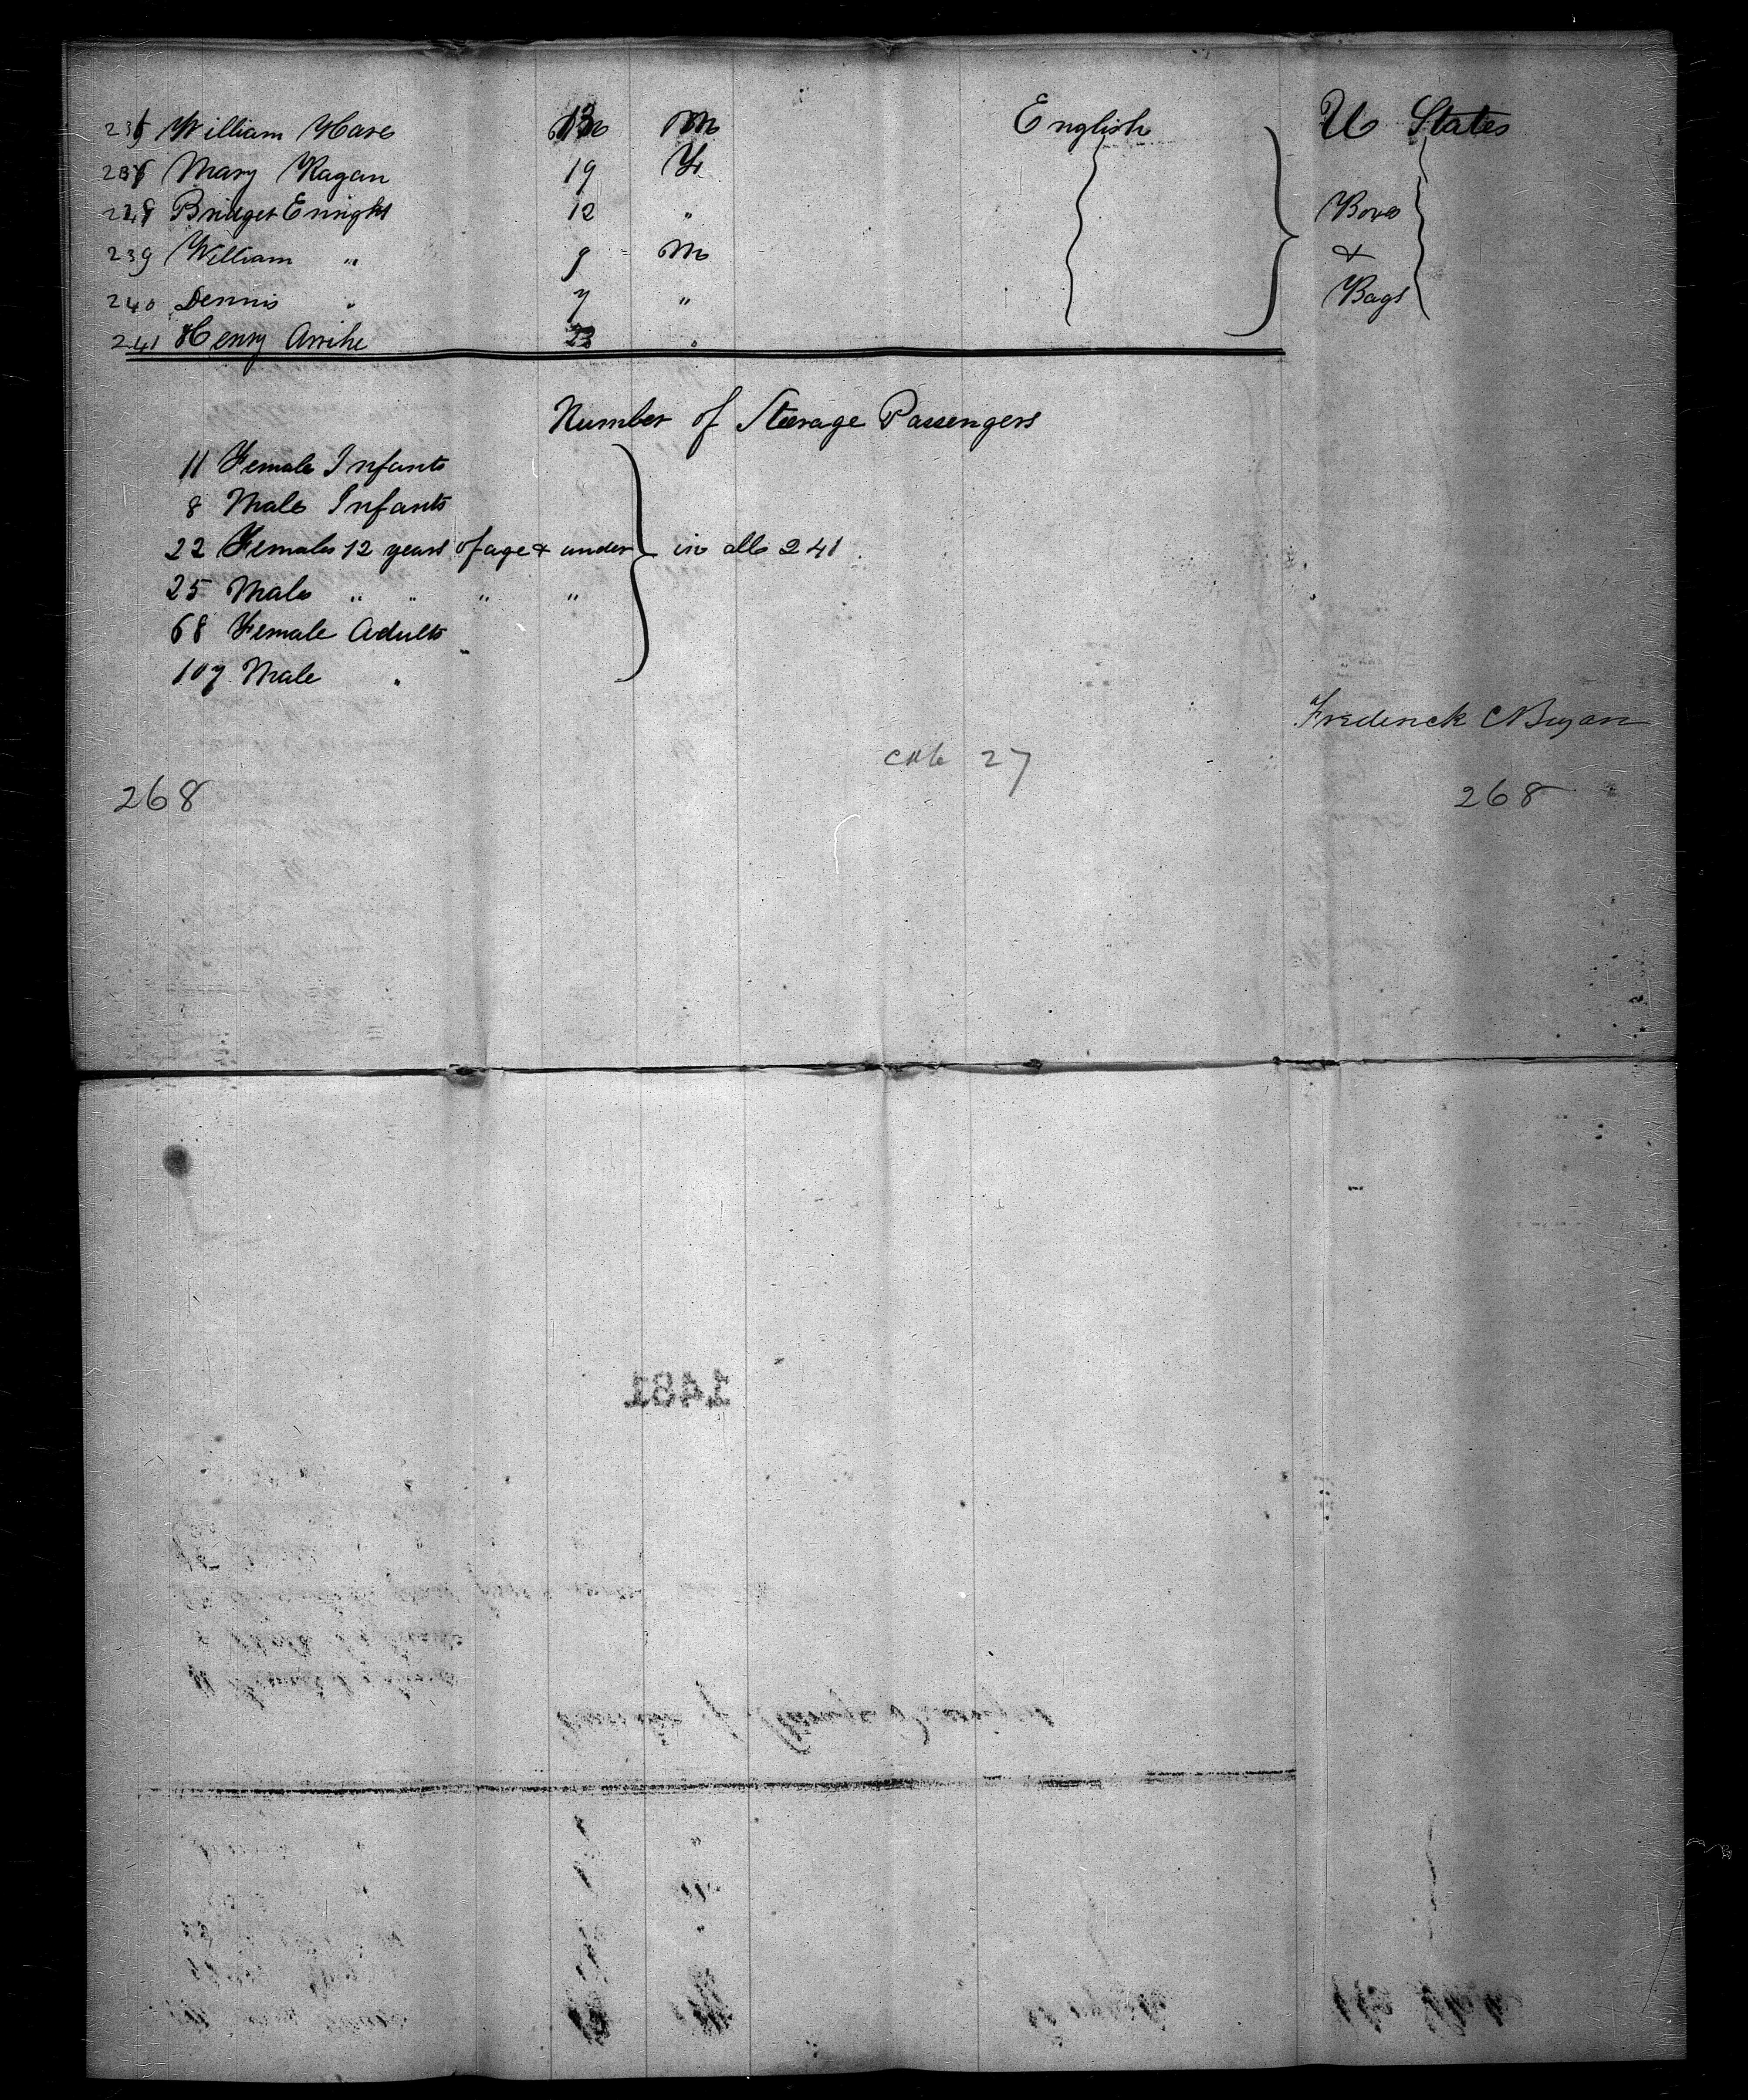 William Hare M English U States
Mary Ragan 19 F
Bridget Enright 12 " Boxes
239 William " 9 M &
240 Dennis " 7 " Bags
241 Henry 23 "
Number of Steerage Passengers
11 Female Infants
8 Male Infants
22 Females 12 years of age & under in all 241
25 Male " " " "
68 Female Adults
107 Male "
Frederick
27
268 268
1481